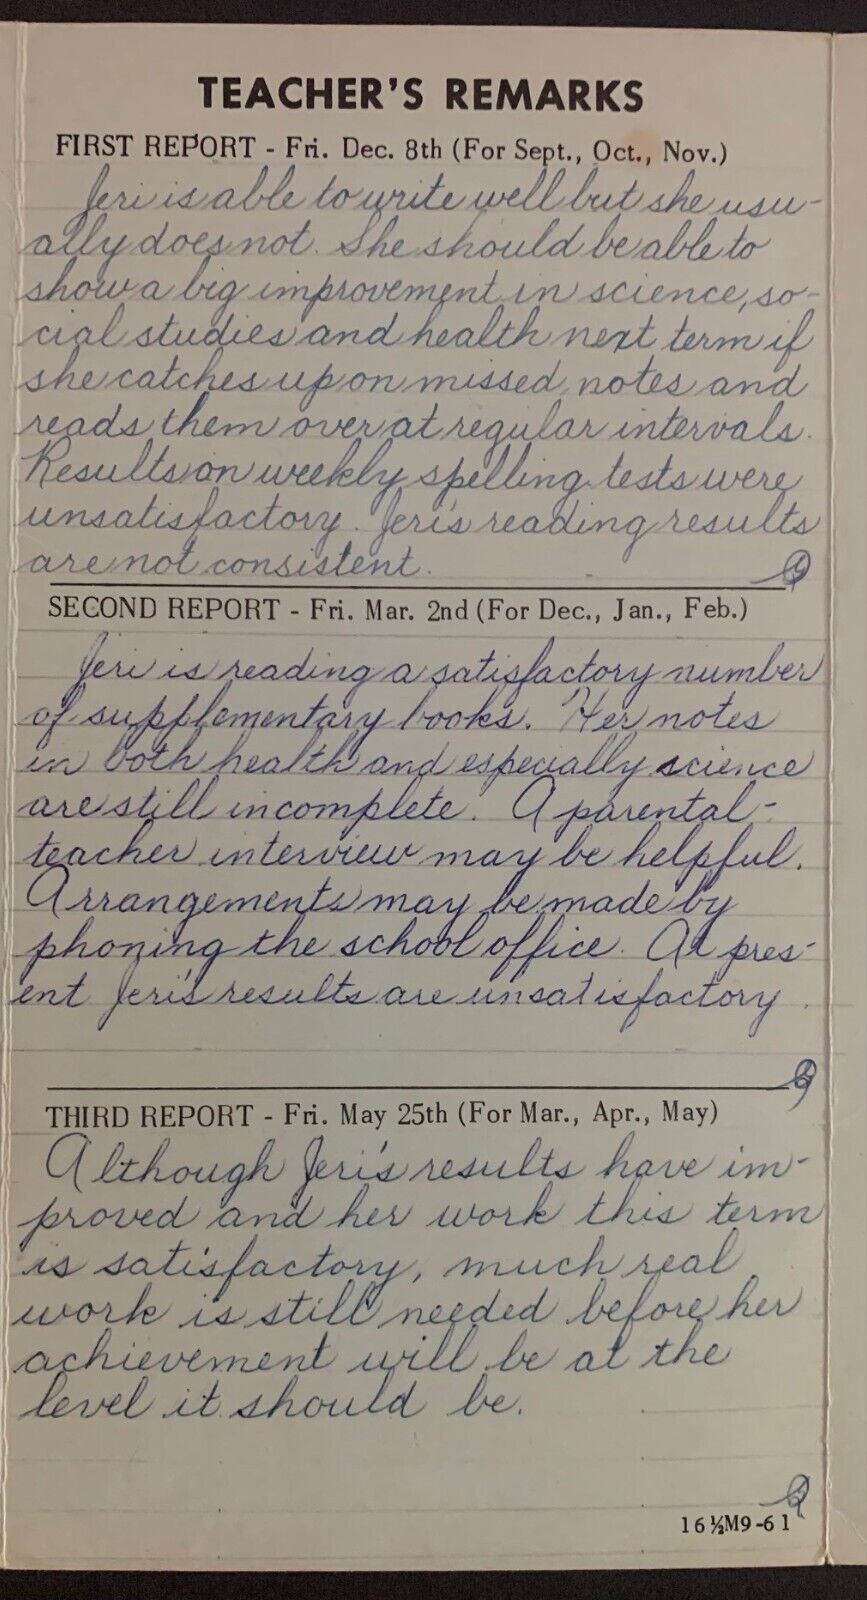 TEACHER'S REMARKS
FIRST REPORT - Fri. Dec. 8th (For Sept., Oct., Nov.)
Jeri is able to write well but she usu-
ally does not. She should be able to
show a big improvement in science, so-
cial studies and health next term if
she catches up on missed notes and
reads them over at regular intervals.
Results on weekly spelling tests were
unsatisfactory. Jeri's reading results
are not consistent.
SECOND REPORT - Fri. Mar. 2nd (For Dec., Jan., Feb.)
Jeri is reading a satisfactory number
of supplementary books. Her notes
in both health and especially science
are still incomplete. A parental-
teacher interview may be helpful.
Arrangements may be made by
phoning the school office. At pres-
ent Jeri's results are unsatisfactory.
THIRD REPORT - Fri. May 25th (For Mar., Apr., May)
Although Jeri's results have im-
proved and her work this term
is satisfactory, much real
work is still needed before her
achievement will be at the
level it should be.
16½M9-61